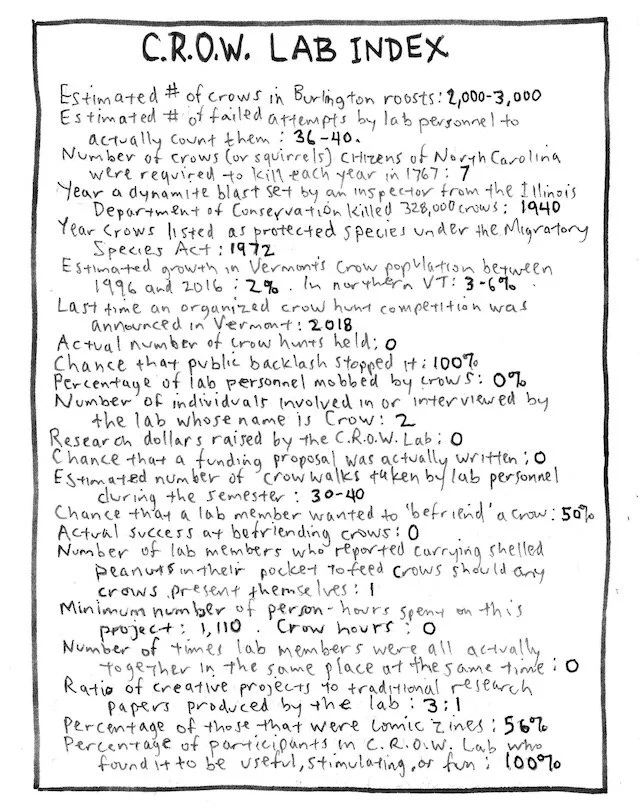 C.R.O.W. LAB INDEX
Estimated # of crows in Burlington roosts: 2,000-3,000
Estimated # of failed attempts by lab personnel to
actually count them: 36-40.
Number of crows (or squirrels) citizens of North Carolina
were required to kill each year in 1767: 7
Year a dynamite blast set by an inspector from the Illinois
Department of Conservation killed 328,000 crows: 1940
Year Crows listed as protected species under the Migratory
Species Act: 1972
Estimated growth in Vermont's Crow population between
1996 and 2016: 2%. In northern VT: 3-6%.
Last time an organized crow hunt competition was
announced in Vermont: 2018
Actual number of crow hunts held: 0
Chance that public backlash stopped it: 100%
Percentage of lab personnel mobbed by crows: 0%
Number of individuals involved in or interviewed by
the lab whose name is Crow: 2
Research dollars raised by the C.R.O.W. Lab: 0
Chance that a funding proposal was actually written: 0
Estimated number of crow walks taken by lab personnel
during the semester: 30-40
Chance that a lab member wanted to 'befriend' a crow: 50%
Actual success at befriending crows: 0
Number of lab members who reported carrying shelled
peanuts in their pocket to feed crows should any
crows present themselves: 1
Minimum number of person-hours spent on this
project: 1,110. Crow hours: 0
Number of times lab members were all actually
together in the same place at the same time: 0
Ratio of creative projects to traditional research
papers produced by the lab: 3:1
Percentage of those that were comic zines: 56%
Percentage of participants in C.R.O.W. Lab who
found it to be useful, stimulating, or fun: 100%